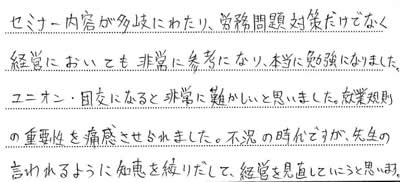 セミナー内容が多岐にわたり、労務問題対策だけでなく
経営においても非常に参考になり、本当に勉強になりました。
ユニオン・団交になると非常に難かしいと思いました。就業規則
の重要性を痛感させられました。不況の時代ですが、先生の
言われるように知恵を絞りだして、経営を見直していこうと思います。